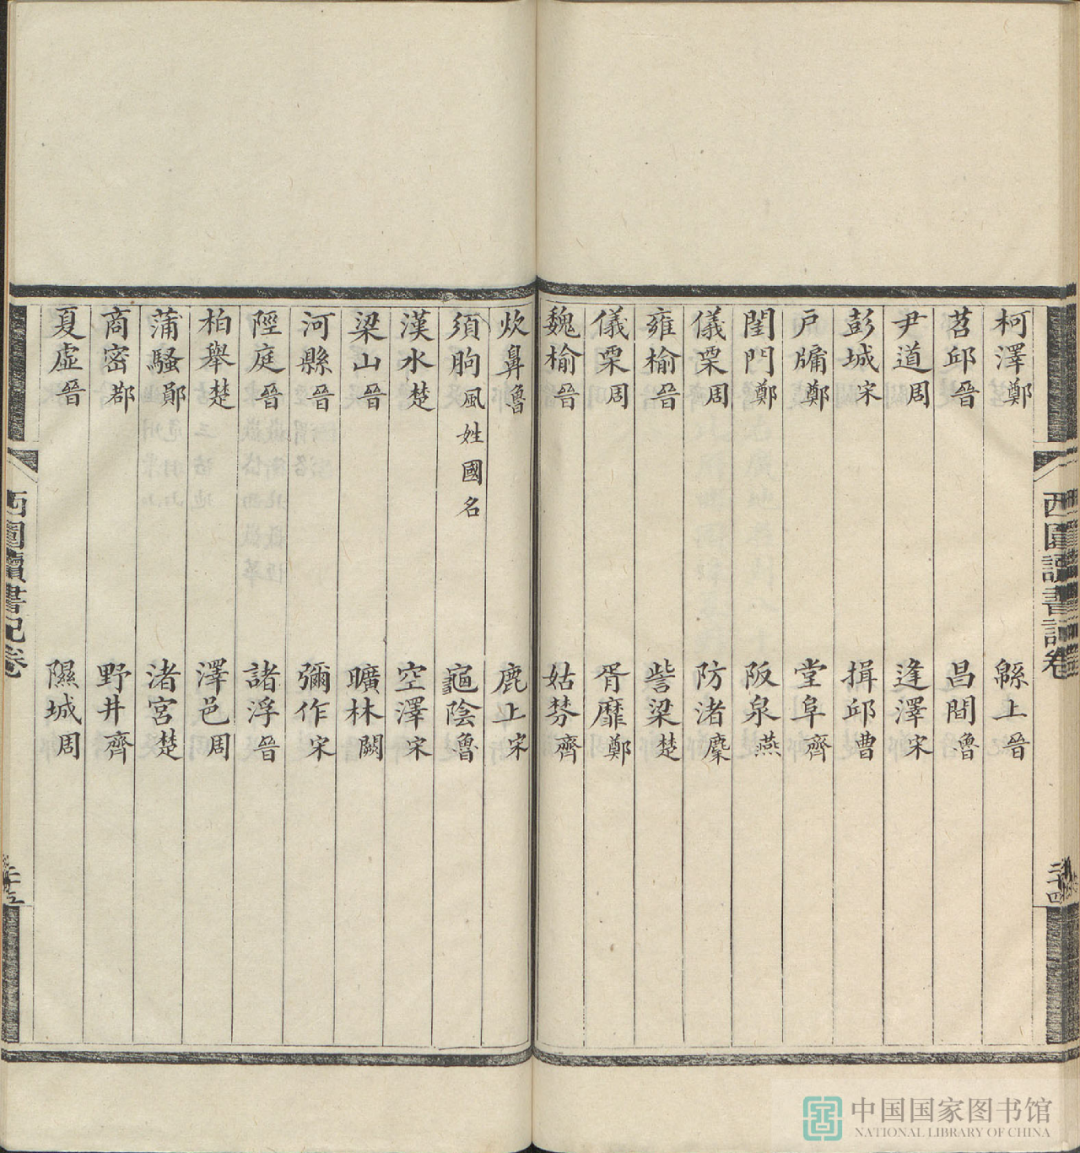 西圃讀書記卷
三十四
柯澤鄭 緜上晉
苕邱晉 昌閒魯
尹道周 逢澤宋
彭城宋 揖邱曹
戸牖鄭 堂阜齊
閨門鄭 阪泉燕
儀栗周 防渚麇
雍榆晉 訾梁楚
儀栗周 胥靡鄭
魏榆晉 姑棼齊
炊鼻魯 鹿上宋
須朐風姓國名 龜陰魯
漢水楚 空澤宋
梁山晉 曠林闕
河縣晉 彌作宋
陘庭晉 諸浮晉
柏舉楚 澤邑周
蒲騷鄖 渚宮楚
商密鄀 野井齊
夏虛晉 隰城周
西圃讀書記卷
三十五
中国国家图书馆
NATIONAL LIBRARY OF CHINA